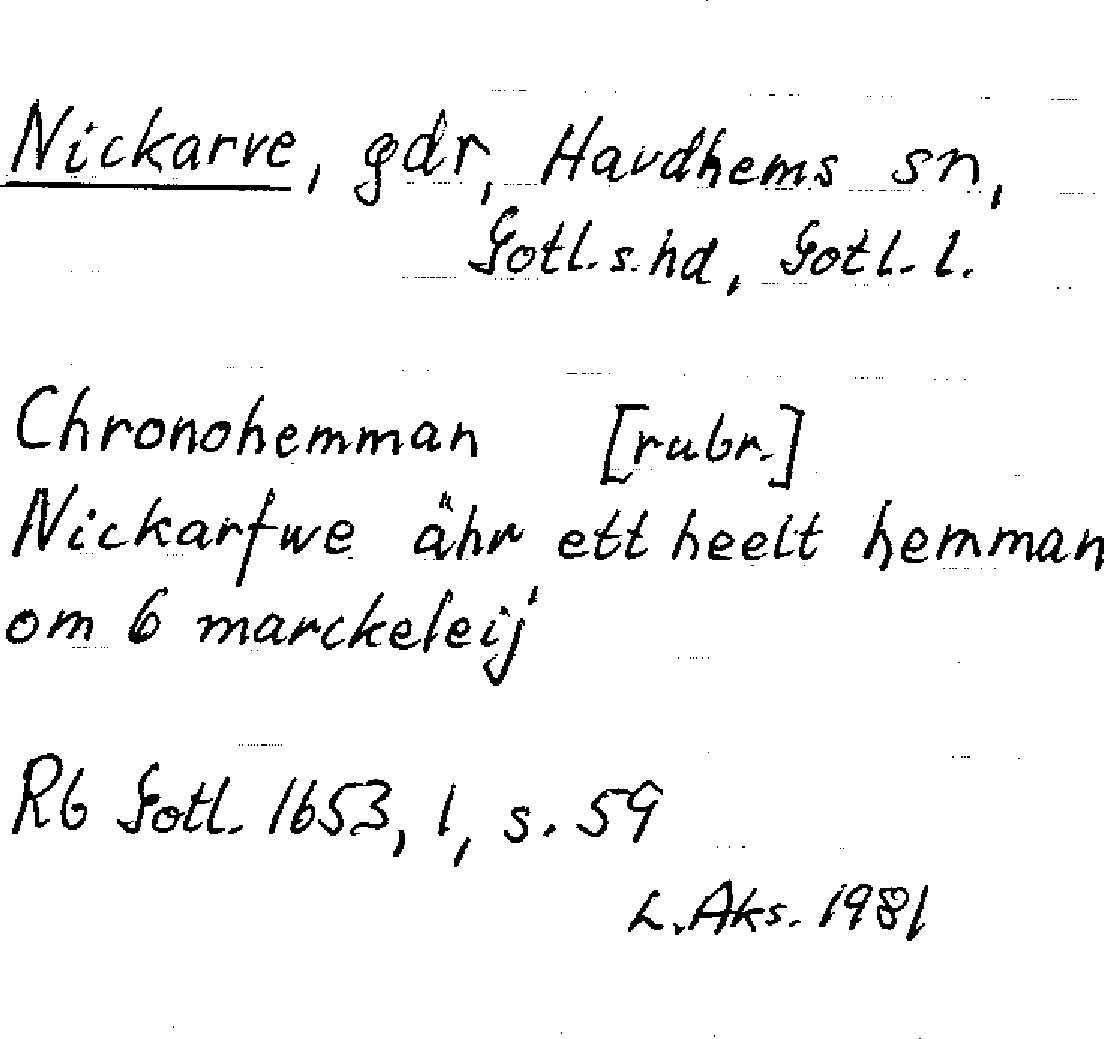 Nickarve, gdr, Havdhems sn,
Gotl. s. hd, Gotl. l.
Chronohemman [rubr.]
Nickarfwe ähr ett heelt hemman
om 6 marckeleij
Rb Gotl. 1653, 1, s. 59
L. Aks. 1981